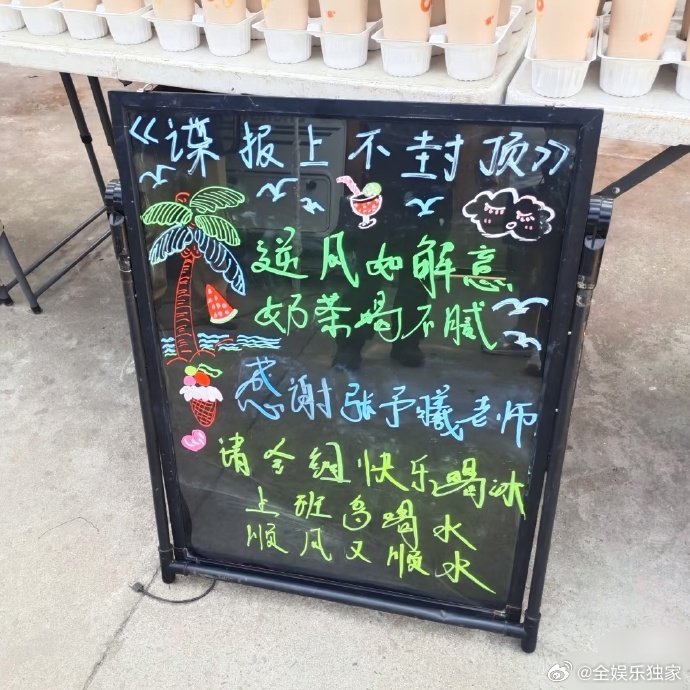 《谍报上不封顶》
逆风如解意
奶茶喝不腻
感谢张予曦老师
请全组快乐喝冰
上班多喝水
顺风又顺水
@全娱乐独家